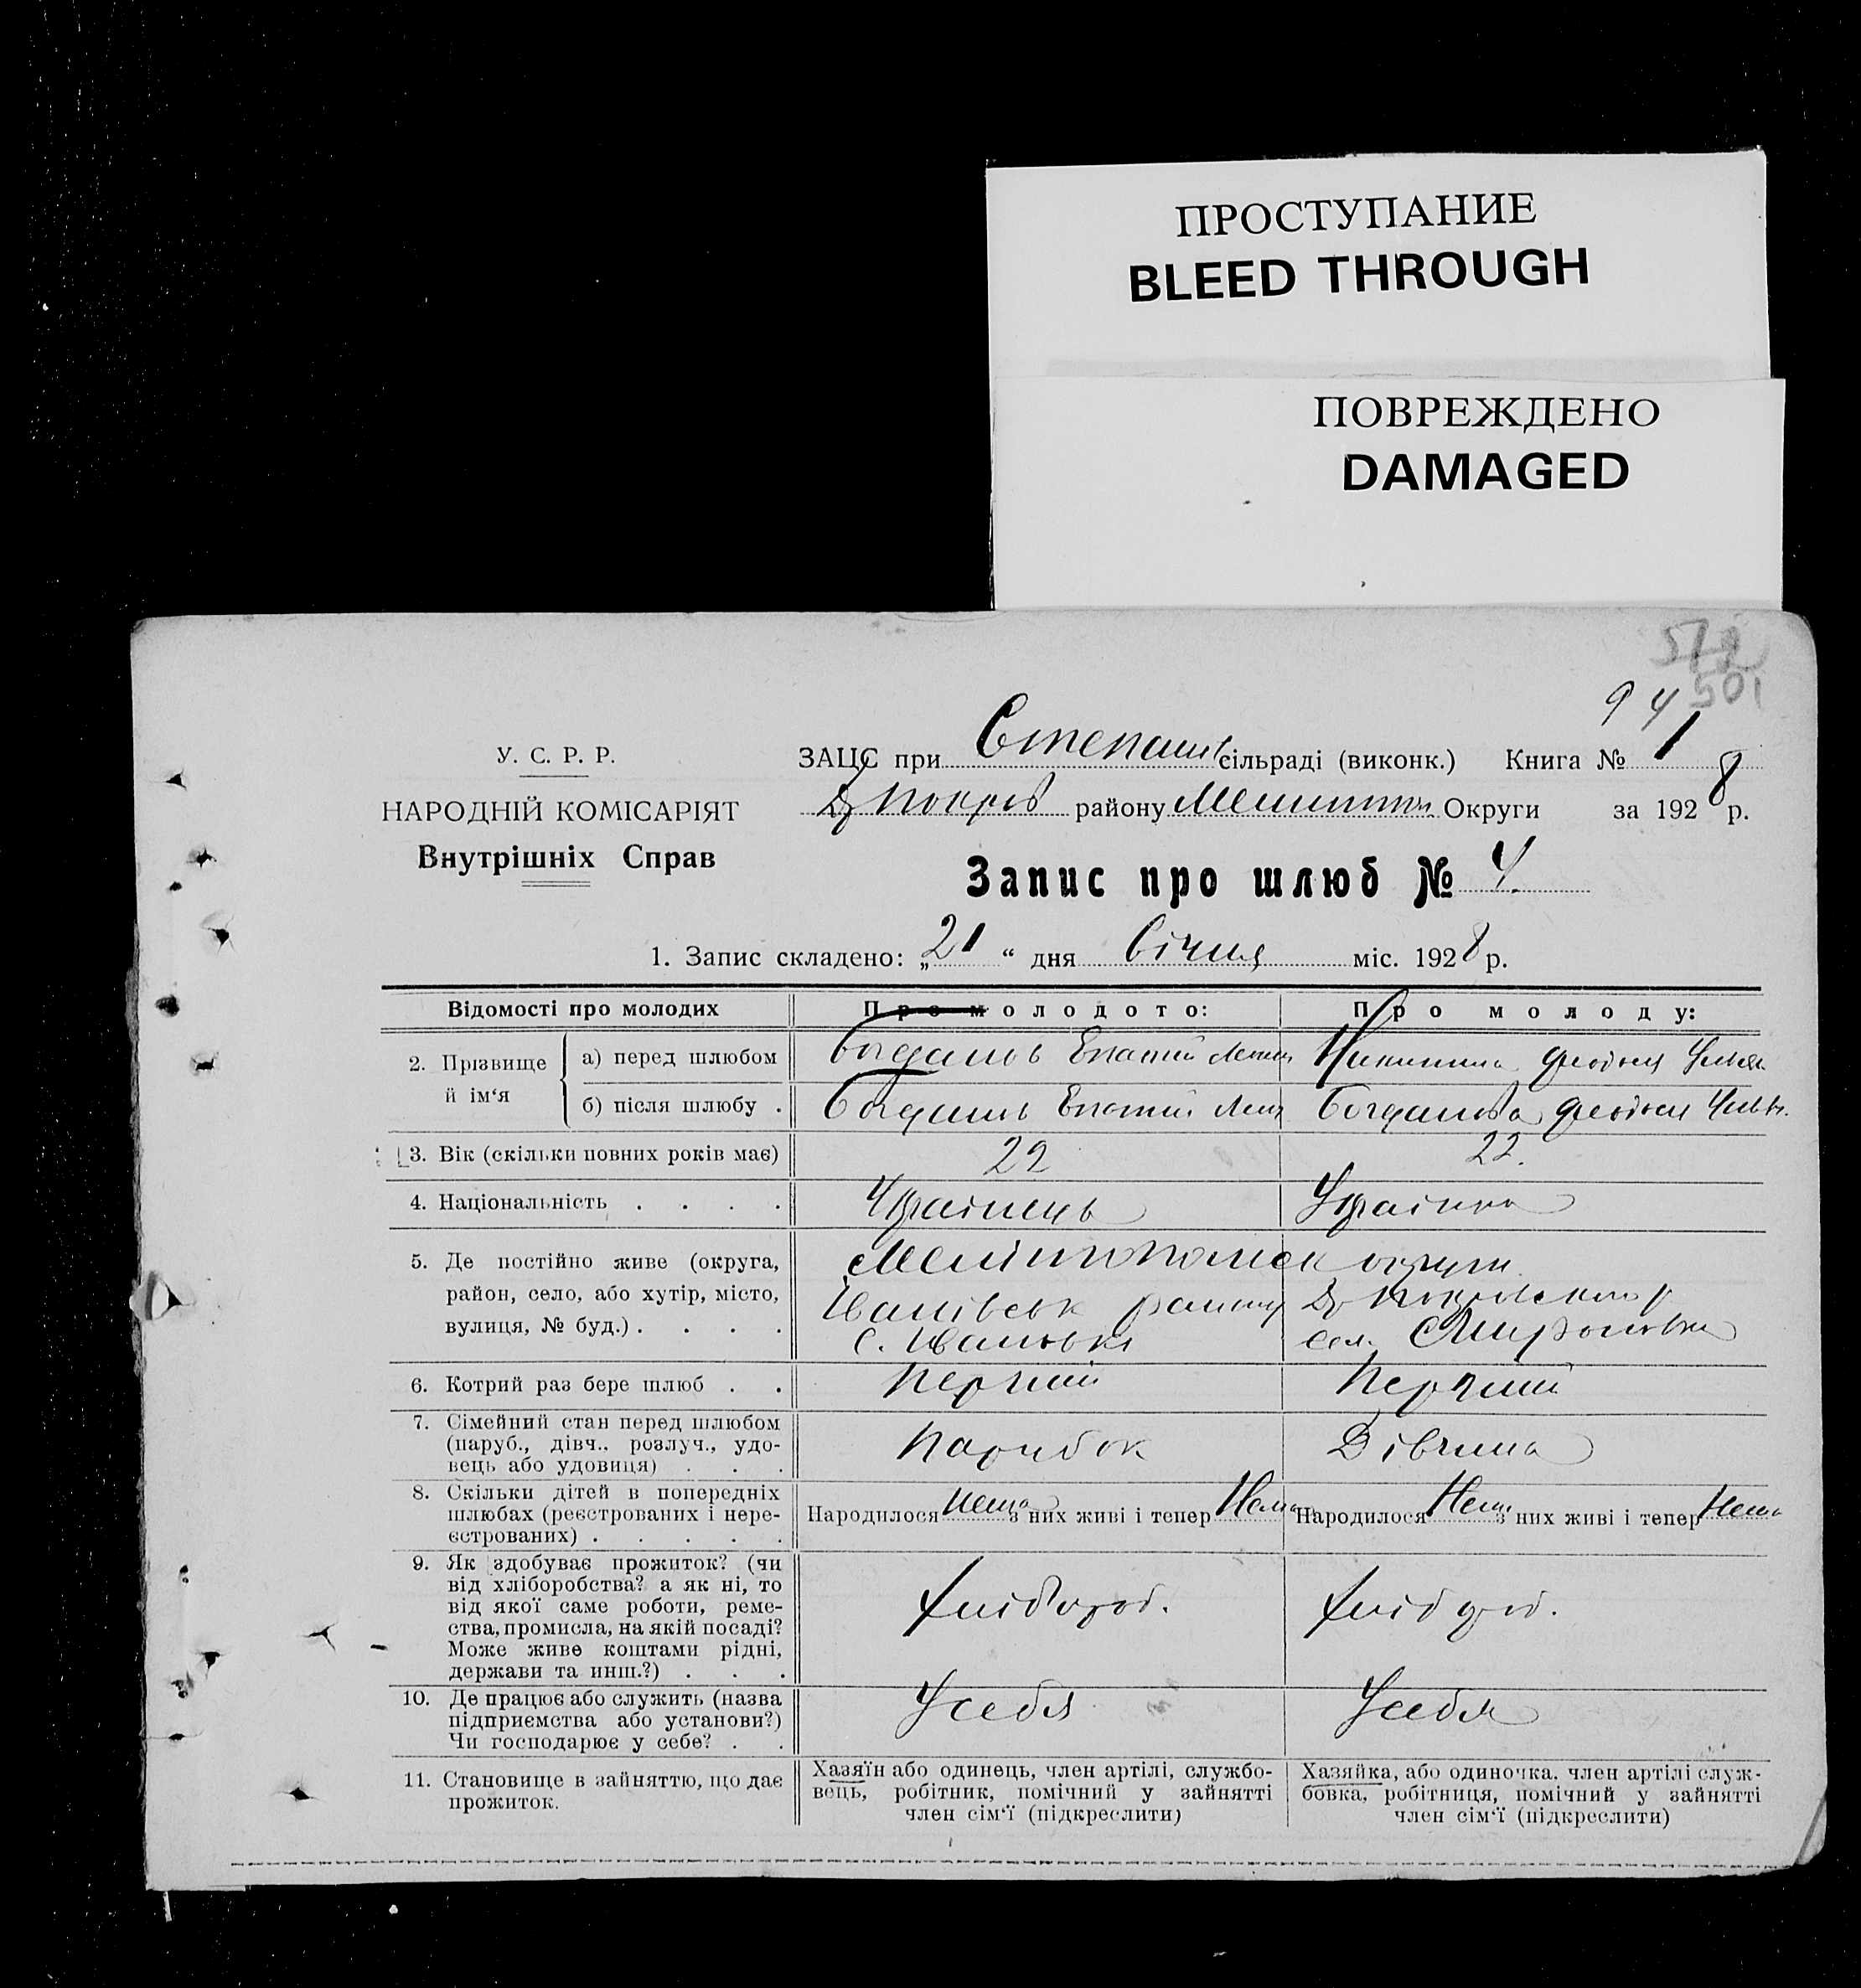 ПРОСТУПАНИЕ
BLEED THROUGH
ПОВРЕЖДЕНО
DAMAGED
501
94
У. С. Р. Р.
ЗАЦС при Степанів сільраді (виконк.) Книга № 1
НАРОДНІЙ КОМІСАРІЯТ
Внутрішніх Справ
Д Покров району Мелітоп Округи за 1928 р.
Запис про шлюб № 4.
1. Запис складено: „21“ дня Січня міс. 1928 р.
Відомості про молодих Про молодого: Про молоду:
2. Прізвище й ім‘я
а) перед шлюбом Богданов Никитина
б) після шлюбу . Богданов Богданова
3. Вік (скільки повних років має) 22 22.
4. Національність . . . . Українець Українка
5. Де постійно живе (округа, район, село, або хутір, місто, вулиця, № буд.) . . . .
Мелітопольск округи
Іванівськ району Д Покровськ р
с. Іванівка сел. Мироновка
6. Котрий раз бере шлюб . . Перший Перший
7. Сімейний стан перед шлюбом
(паруб., дівч., розлуч., удо-
вець або удовиця) . . . Парубок Дівчина
8. Скільки дітей в попередніх
шлюбах (реєстрованих і нере-
єстрованих) . . . . .
Народилося Нема з них живі і тепер Нема Народилося Нема з них живі і тепер Нема
9. Як здобуває прожиток? (чи
від хліборобства? а як ні, то
від якої саме роботи, реме-
ства, промисла, на якій посаді?
Може живе коштами рідні,
держави та инш.?) . . .
Хлібороб. Хлібороб.
10. Де працює або служить (назва
підприємства або установи?)
Чи господарює у себе? . .
У себя У себя
11. Становище в зайняттю, що дає
прожиток.
Хазяїн або одинець, член артілі, службо-
вець, робітник, помічний у зайнятті
член сім‘ї (підкреслити)
Хазяйка, або одиночка, член артілі служ-
бовка, робітниця, помічний у зайнятті
член сім‘ї (підкреслити)